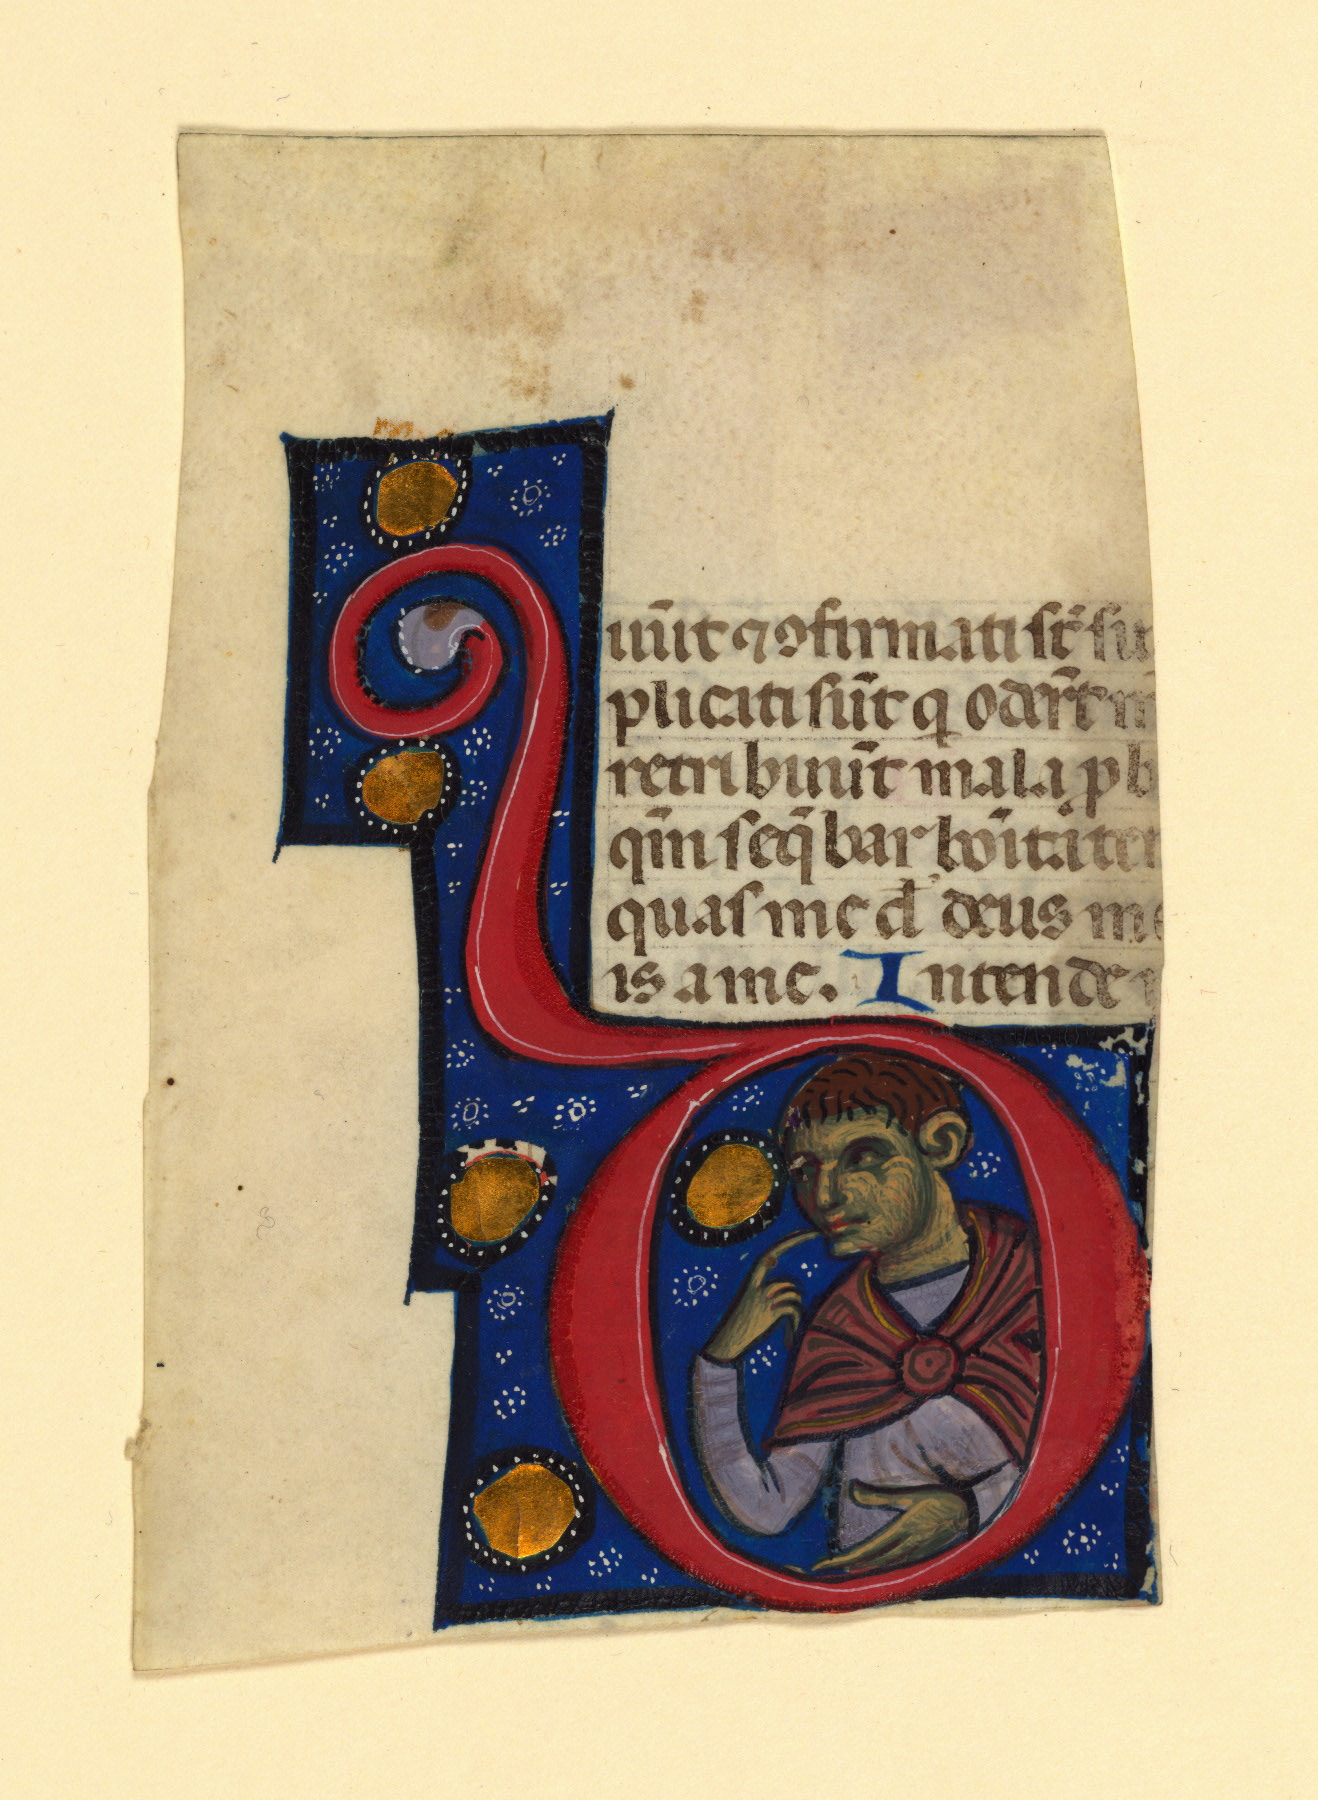 uūt ⁊ ꝯfirmati st̄ su
plicati sūt q oder̄t m
retribuūt mala p b
qm̄ seq̄bar boītatē
quas me d' deus me
is a me. Intende
D